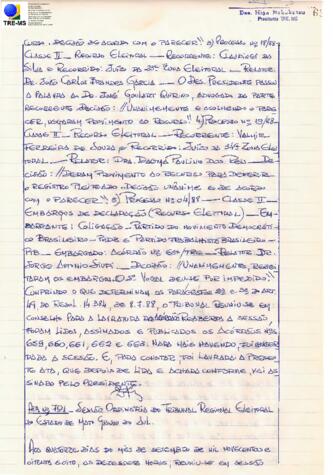 TRE-MS
Des. Higa Nabukatsu
Presidente TRE.MS
DECISÃO: DE ACORDO COM O PARECER". 3) PROCESSO Nº
CLASSE II - RECURSO ELEITORAL - RECORRENTE:
SILVA E RECORRIDO: JUÍZO DA ZONA ELEITORAL - RELATOR:
DR. JOSÉ CARLOS GARCIA - O DES. PRESIDENTE PASSOU
A PALAVRA AO DR. JOSÉ GOULART QUIRINO, ADVOGADO DA PARTE
RECORRENTE. DECISÃO: "UNANIMEMENTE E ACOLHENDO O PARE
CER, NEGARAM PROVIMENTO AO RECURSO". 4) PROCESSO Nº
CLASSE II - RECURSO ELEITORAL - RECORRENTE: VALMIR
FERREIRA DE SOUZA E RECORRIDO: JUÍZO DA ZONA ELEI
TORAL - RELATOR: DRA. DAGMA PAULINO DOS REIS - DE
CISÃO: "DERAM PROVIMENTO AO RECURSO PARA DEFERIR
O REGISTRO PLEITEADO. DECISÃO UNÂNIME E DE ACORDO
COM O PARECER". 5) PROCESSO Nº 04/88 - CLASSE II -
EMBARGOS DE DECLARAÇÃO (RECURSO ELEITORAL) - EM-
BARGANTE: COLIGAÇÃO - PARTIDO DO MOVIMENTO DEMOCRÁTI
CO BRASILEIRO - PMDB E PARTIDO TRABALHISTA BRASILEIRO -
PTB - EMBARGADO: ACÓRDÃO Nº RELATOR: DR.
JORGE ANTONIO SIUFI. DECISÃO: "UNANIMEMENTE, REJEI
TARAM OS EMBARGOS. O 5º VOGAL DEU-SE POR IMPEDIDO".
CUMPRINDO O QUE DETERMINAM OS PARÁGRAFOS 2º E 3º DO ART.
49 DA RESOL. 14.384, DE 8.7.88, O TRIBUNAL REUNIU-SE EM
CONSELHO PARA A LAVRATURA DOS ACÓRDÃOS. REABERTA A SESSÃO,
FORAM LIDOS, ASSINADOS E PUBLICADOS OS ACÓRDÃOS NºS
659, 660, 661, 662 E 663. NADA MAIS HAVENDO, FOI ENCER
RADA A SESSÃO. E, PARA CONSTAR, FOI LAVRADA A PRESEN
TE ATA, QUE DEPOIS DE LIDA E ACHADA CONFORME, VAI AS
SINADA PELO PRESIDENTE.
ATA Nº 721 - SESSÃO ORDINÁRIA DO TRIBUNAL REGIONAL ELEITORAL
DO ESTADO DE MATO GROSSO DO SUL.
AOS QUATORZE DIAS DO MÊS DE SETEMBRO DE MIL NOVECENTOS E
OITENTA E OITO, ÀS DEZESSEIS HORAS, REUNIU-SE EM SESSÃO